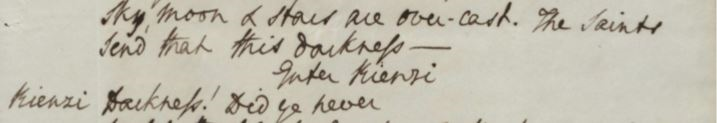 sky, moon & stars are over-cast. The Saints
send that this darkneſs —
Enter Rienzi
Rienzi Darkneſs! Did ye never